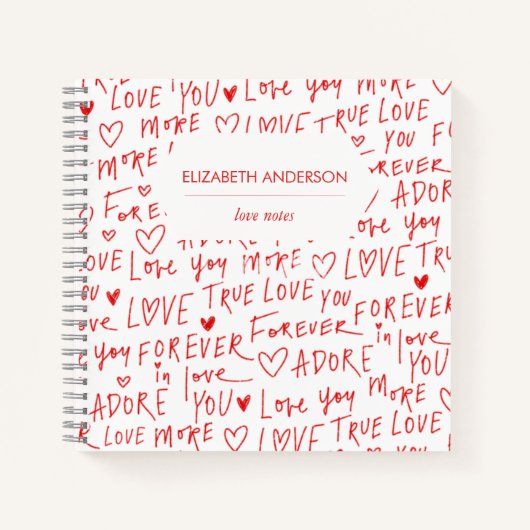 LOVE YOU Love you MORE
MORE LOVE TRUE LOVE
MORE YOU FOREVER
ELIZABETH ANDERSON
FOREVER ADORE
love notes
FOREVER
ADORE
Love you MORE LOVE TRUE
YOU LOVE TRUE LOVE YOU FOREVER
love FOREVER in love
you FOREVER ADORE YOU
in love
ADORE YOU Love you MORE
LOVE MORE LOVE TRUE LOVE